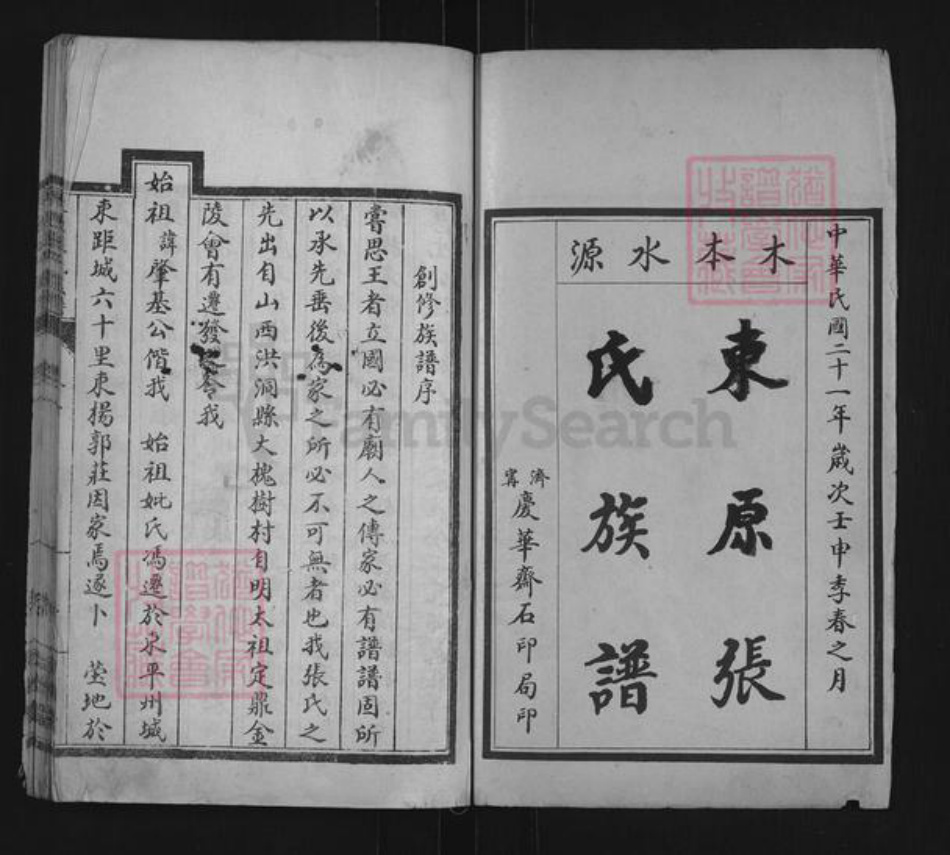 中華民國二十一年歲次壬申季春之月
木本水源
東原張
氏族譜
濟寧慶華齋石印局印
創修族譜序
嘗思王者立國必有廟人之傳家必有譜譜固所
以承先垂後為家之所必不可無者也我張氏之
先出自山西洪洞縣大槐樹村自明太祖定鼎金
陵會有遷發之令我
始祖諱肇基公偕我　始祖妣氏馮遷於東平州城
東距城六十里東楊郭莊因家焉遂卜　塋地於
FamilySearch